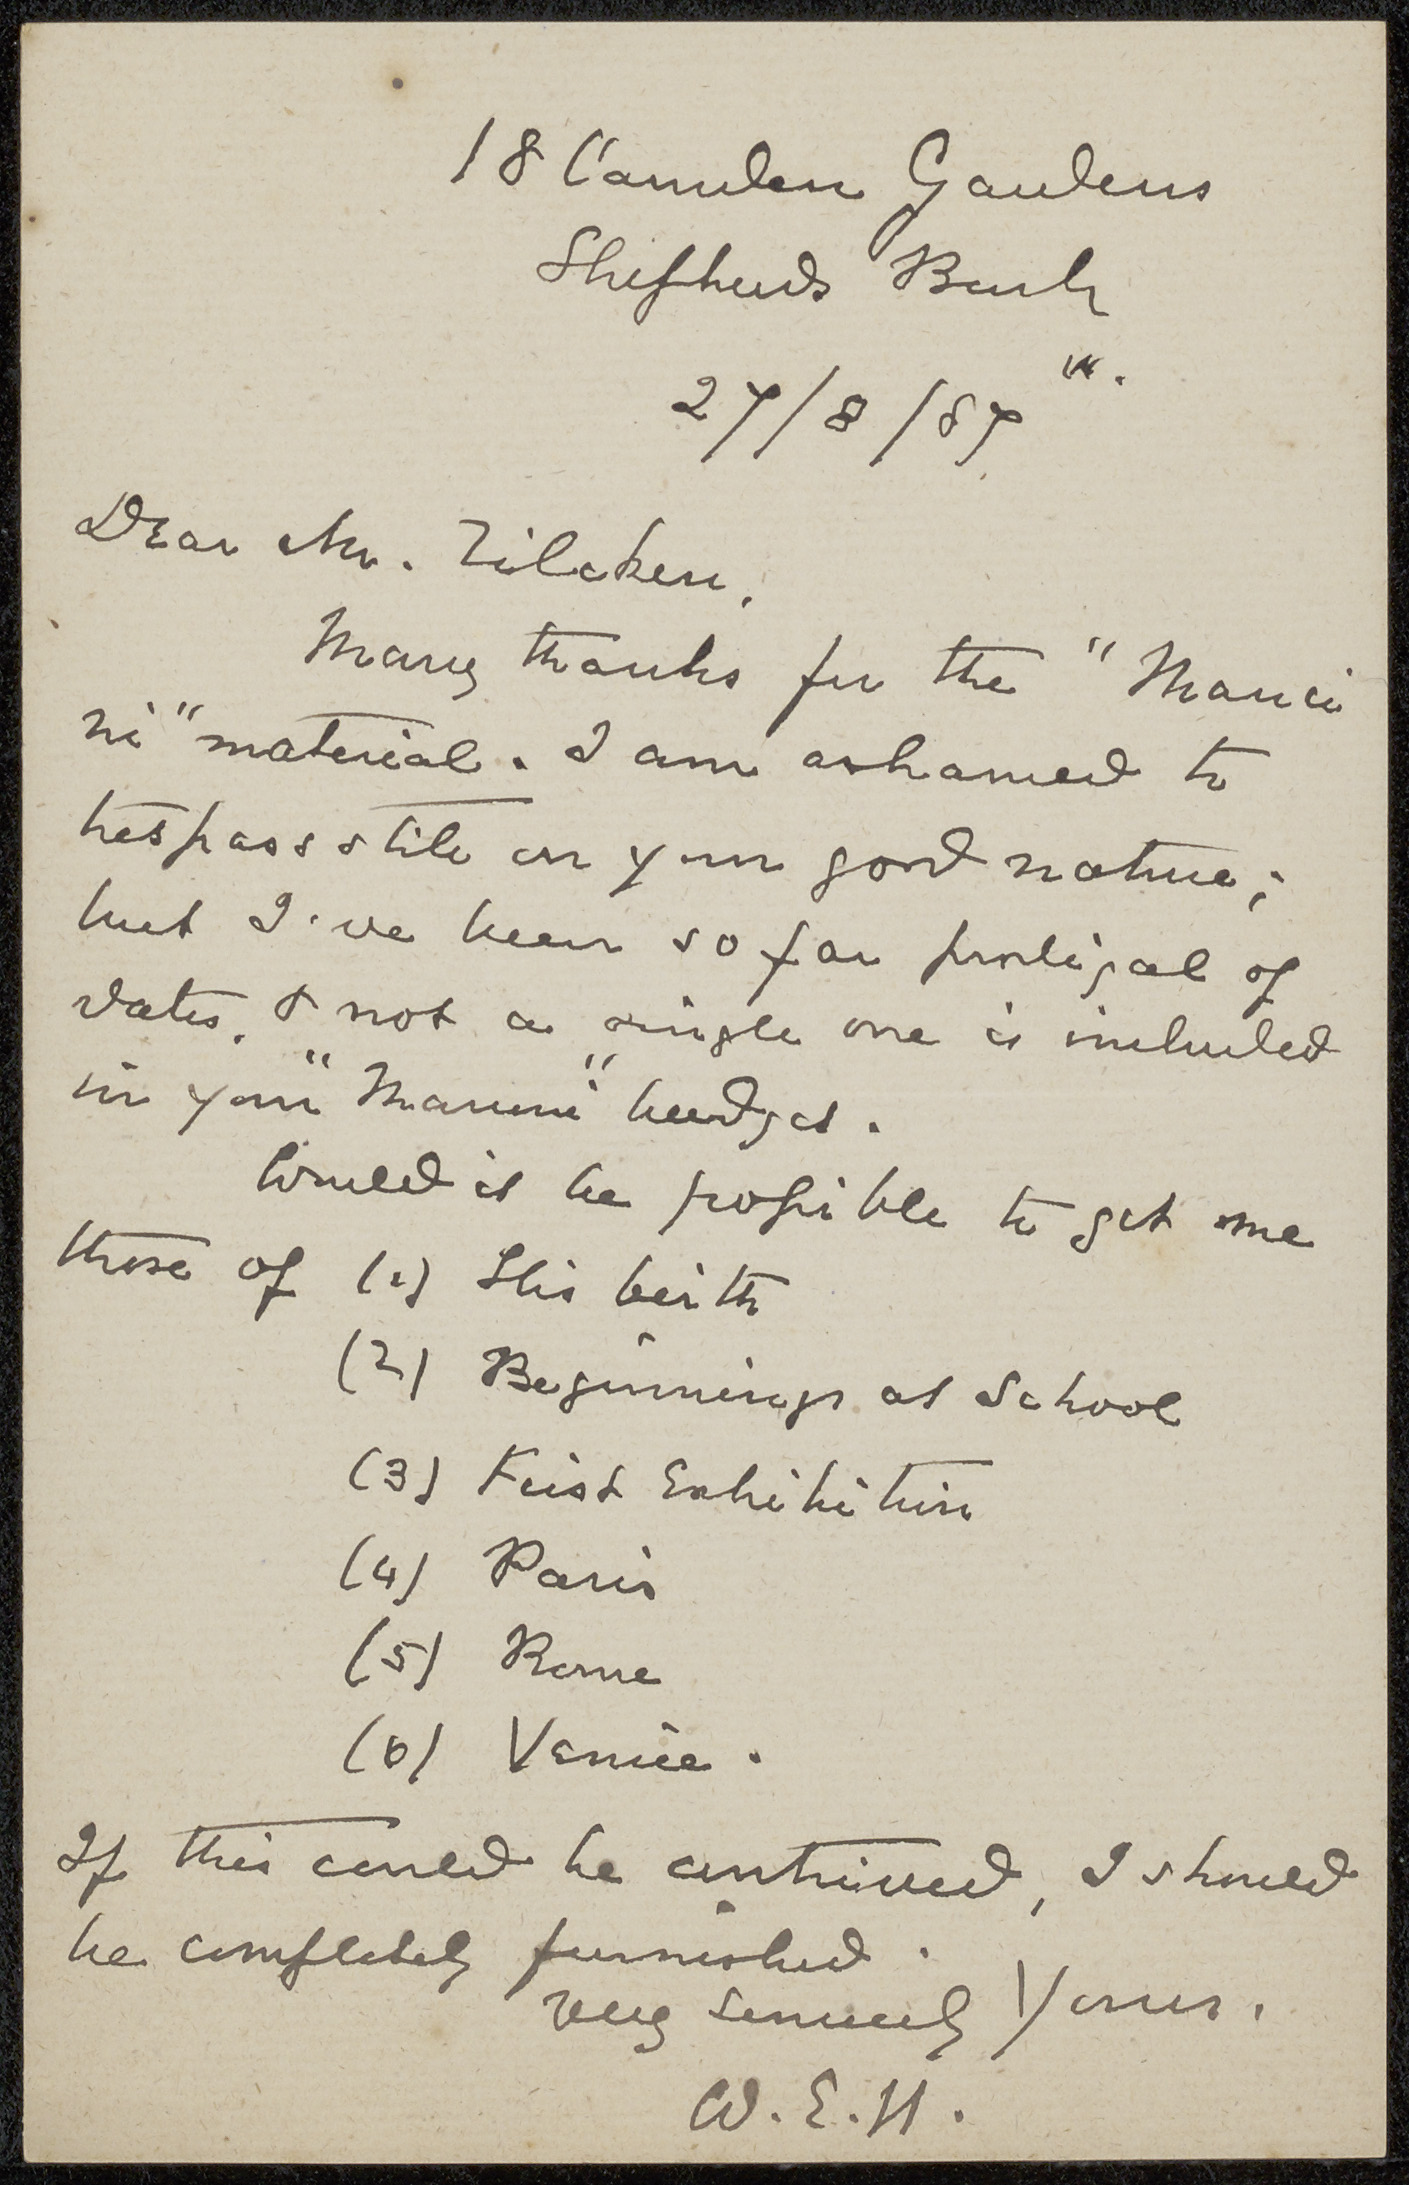 18 Camden Gardens
Shepherds Bush
W.
27/8/87
Dear Mr. Zilcken,
Many thanks for the "Manci
ni" material. I am ashamed to
trespass still on your good nature;
but I've been so far prodigal of
dates, & not a single one is included
in your "Mancini" budget.
Would it be possible to get me
those of (1) His birth
(2) Beginnings at School
(3) First Exhibition
(4) Paris
(5) Rome
(6) Venice.
If this could be contrived, I should
be completely furnished.
Very Sincerely Yours.
W. E. H.